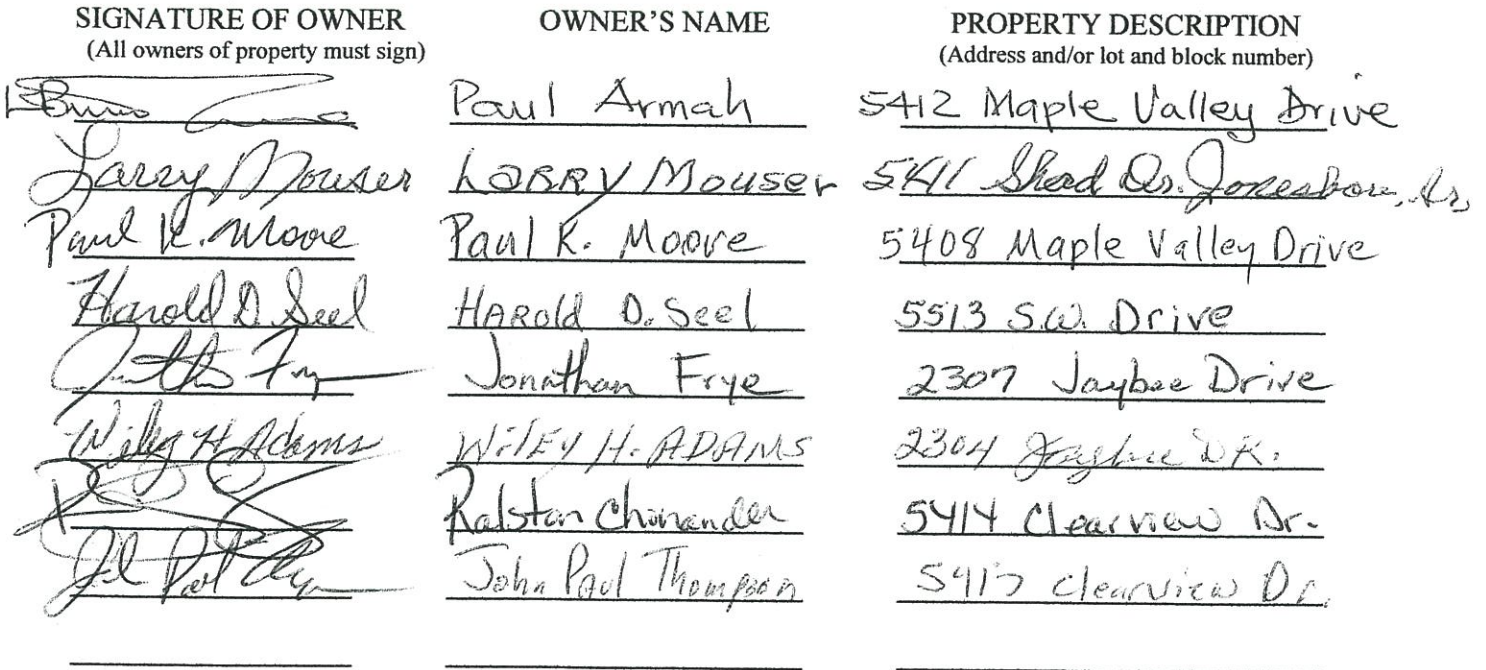 SIGNATURE OF OWNER OWNER'S NAME PROPERTY DESCRIPTION
(All owners of property must sign) (Address and/or lot and block number)
Paul Armah 5412 Maple Valley Drive
Larry Mouser LARRY Mouser 5411 Shad Dr. Jonesboro, Ar,
Paul K. Moore Paul K. Moore 5408 Maple Valley Drive
Harold D. Seel HARold D. Seel 5513 S.W. Drive
Jonathan Frye 2307 Jaybee Drive
Wiley H Adams WilEy H. ADAMS 2304 Jaybee DR.
Ralston 5414 Clearview Dr.
John Paul Thompson Clearview Dr.